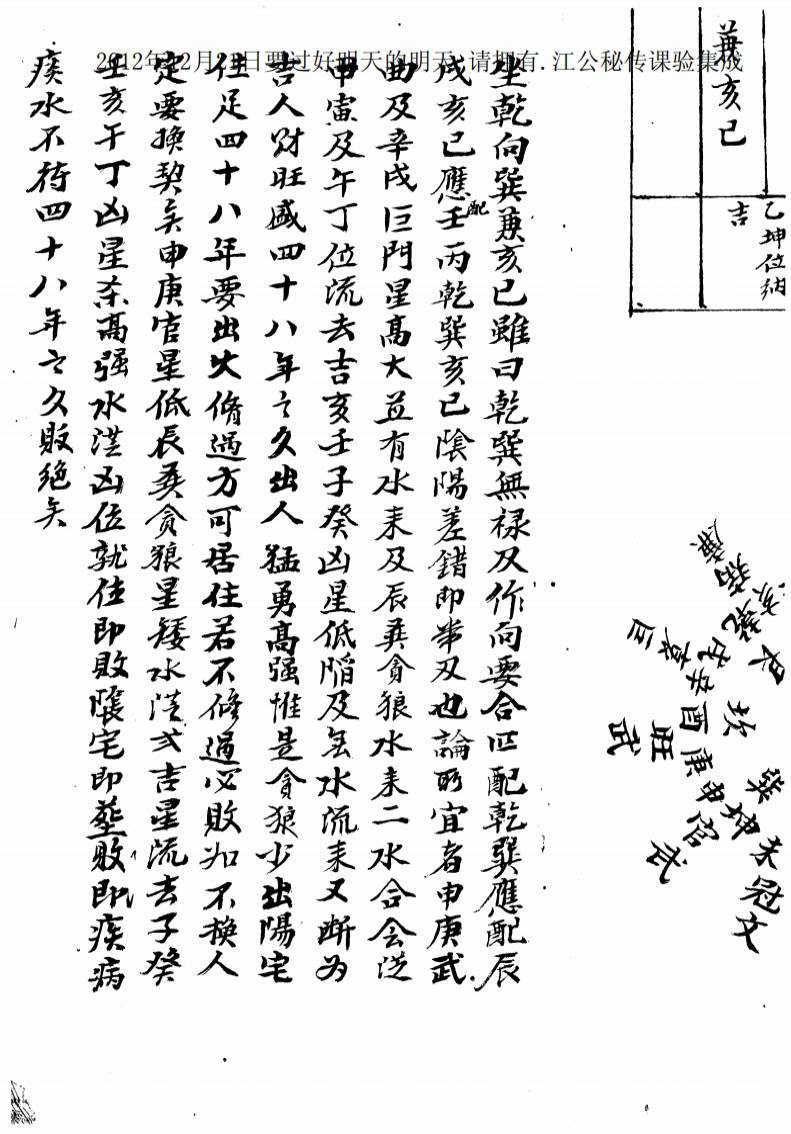 2012年12月21日要过好明天的明天,请拥有.江公秘传课验集成
兼亥巳
乙坤位納
吉
坐乾向巽兼亥巳雖曰乾巽無祿及作向要合匹配乾巽應配辰
戌亥巳應配壬丙乾巽亥巳陰陽差錯即半及也論所宜者申庚武
曲及辛戌巨門星高大並有水來及辰巽貪狼水來二水合会從
申寅及午丁位流去吉亥壬子癸凶星低陷及無水流来又断为
吉人财旺盛四十八年之久出人猛勇高强惟是貪狼少出陽宅
住足四十八年要出火脩過方可居住若不修過必敗如不换人
定要换契矣申庚官星低辰巽貪狼星矮水從弍吉星流去子癸
壬亥午丁凶星杀高强水從凶位就住即敗陰宅即塟敗即疾病
痪水不待四十八年之久敗绝矣
巨
巽
戌
辛
酉
旺
武
庚
申
官
坤
武
未
冠
文